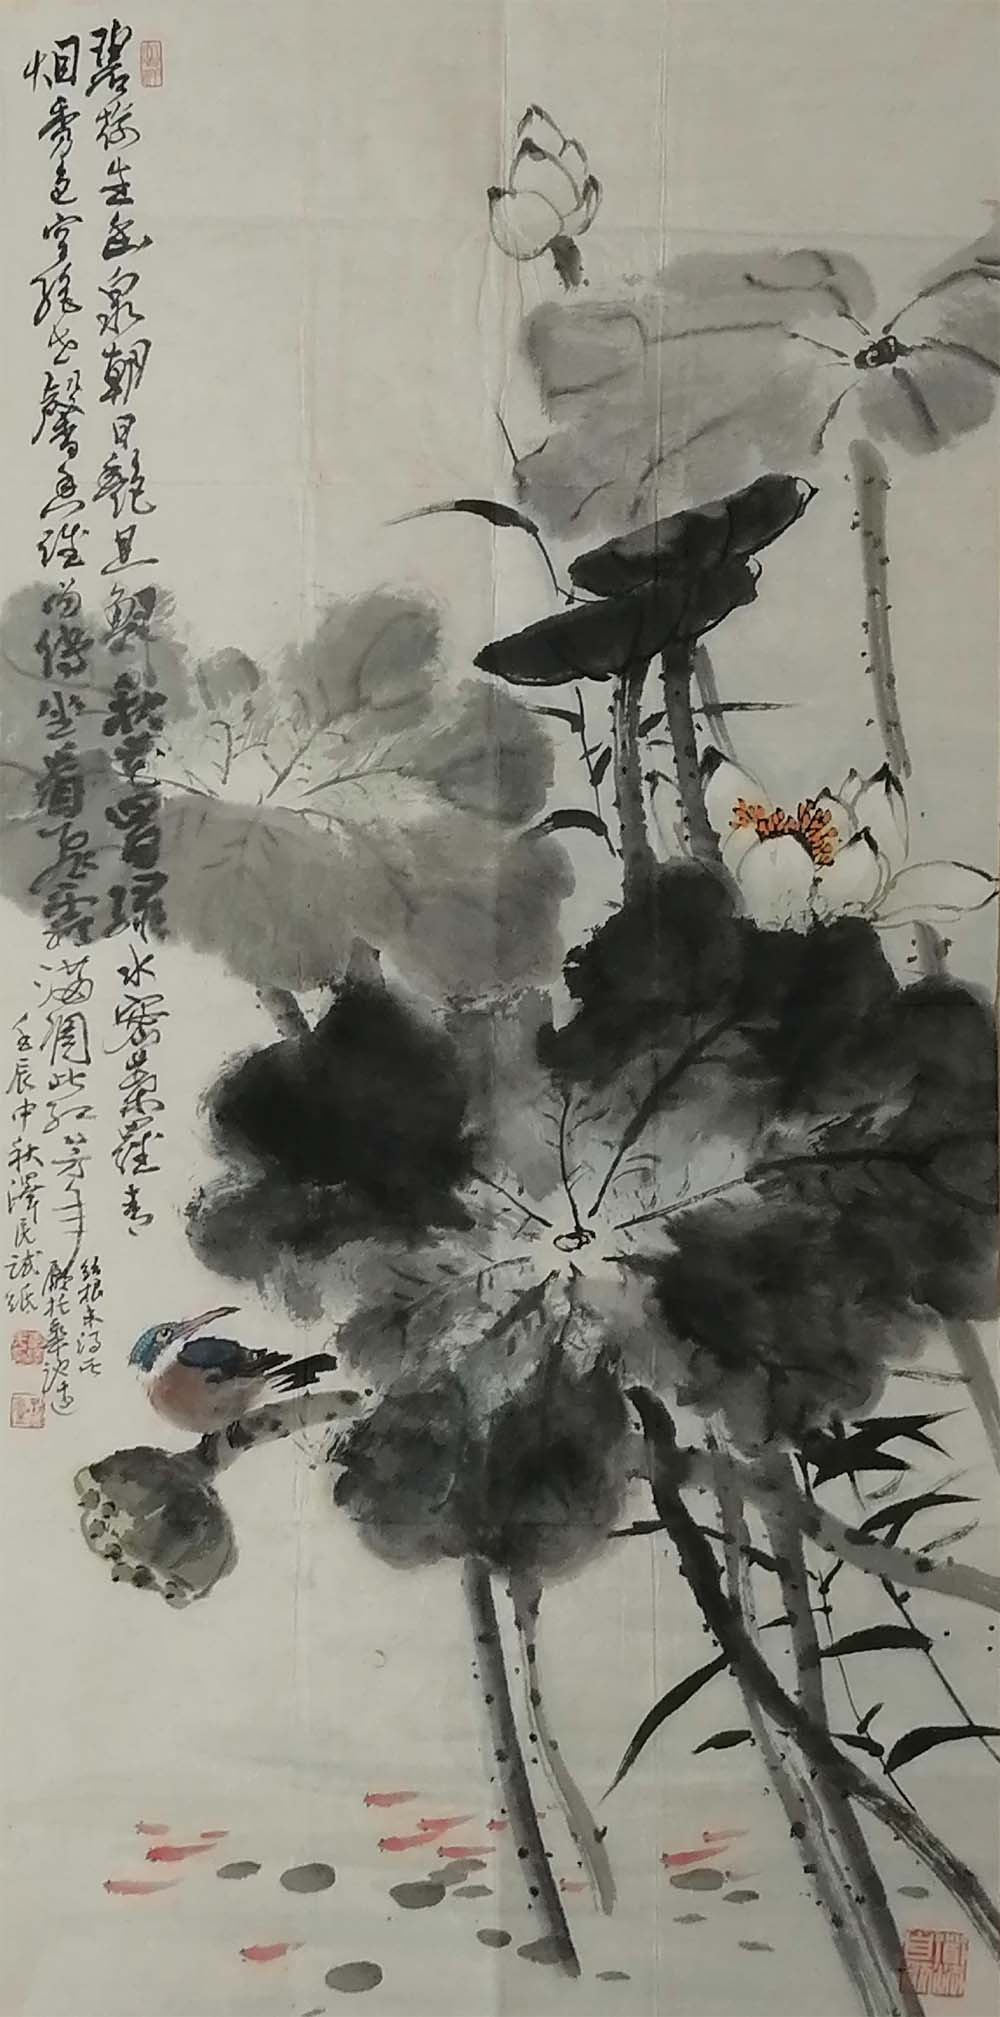 碧荷生幽泉朝日艳且鲜秋花冒绿水密叶罗青
烟秀色空绝世馨香谁为传坐看飞霜满凋此红芳年
结根未得所
愿托华池边
壬辰中秋泽民试纸